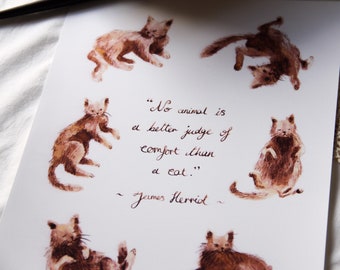 "No animal is
a better judge of
comfort than
a cat."
~ James Herriot ~